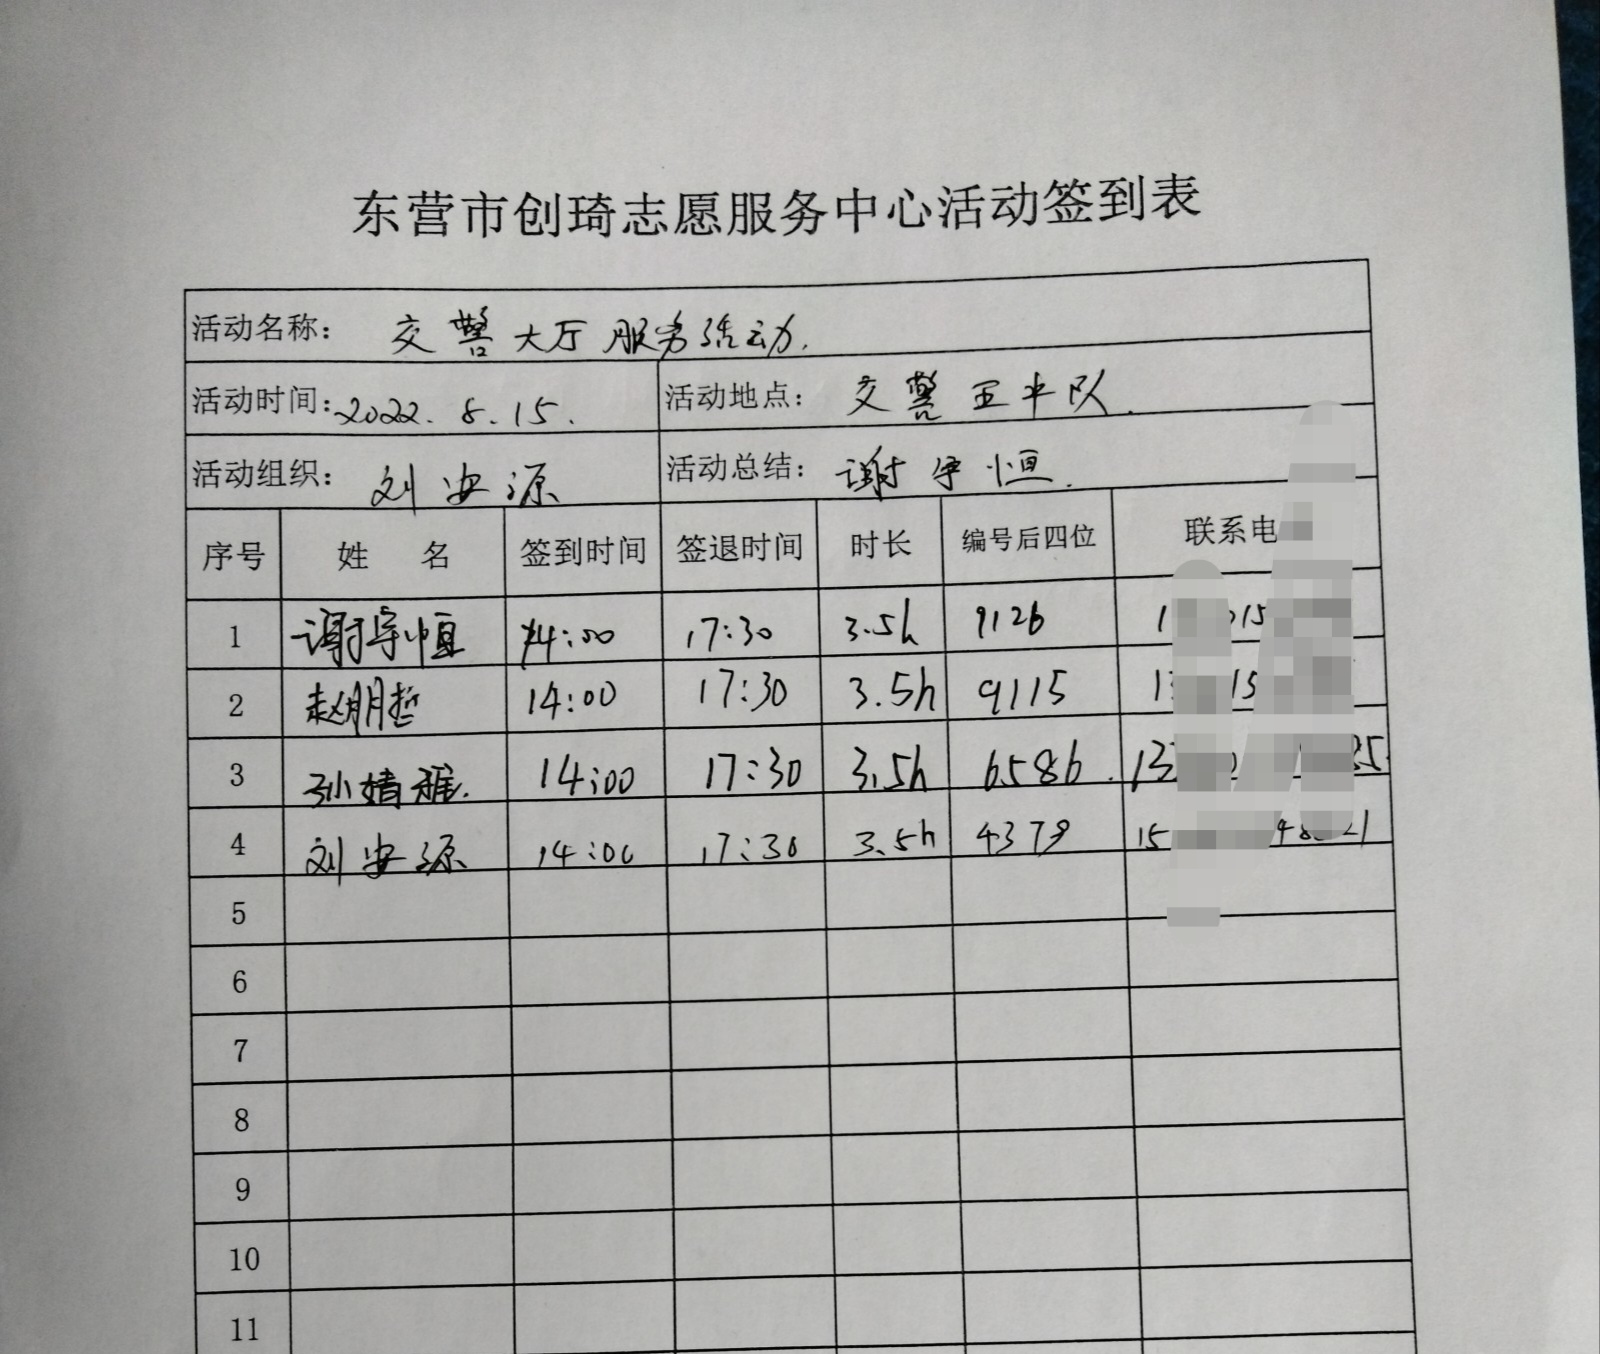 东营市创琦志愿服务中心活动签到表
活动名称: 交警大厅服务活动.
活动时间: 2022.8.15. 活动地点: 交警五中队.
活动组织: 刘安源 活动总结: 谢宇恒.
序号 姓 名 签到时间 签退时间 时长 编号后四位 联系电
1 谢宇恒 14:00 17:30 3.5h 9126
2 赵明哲 14:00 17:30 3.5h 9115
3 孙婧雅. 14:00 17:30 3.5h 6586.
4 刘安源 14:00 17:30 3.5h 4379
5
6
7
8
9
10
11